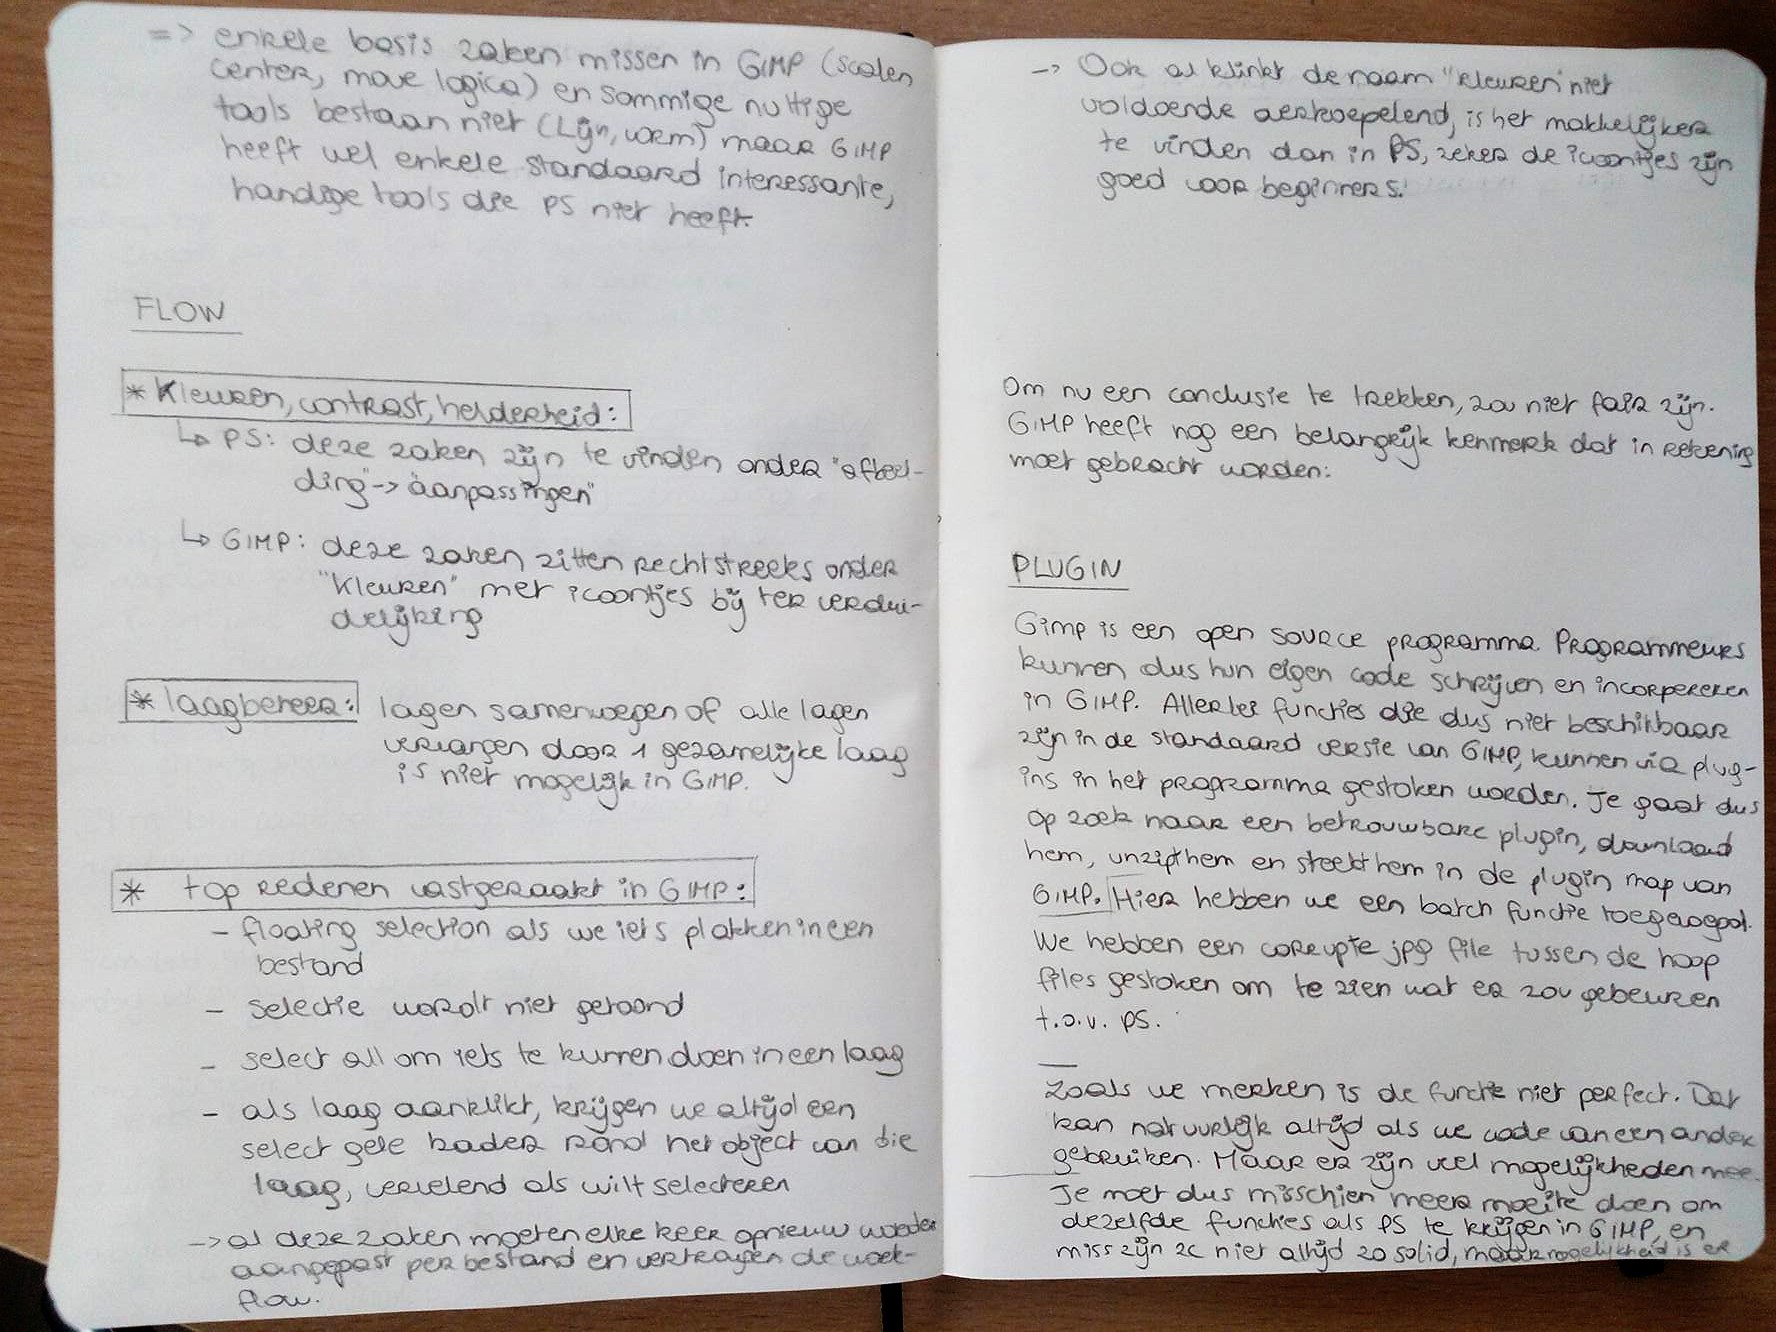 => enkele basis zaken missen in GIMP (scalen
center, move logica) en sommige nuttige
tools bestaan niet (Lijn, vorm) maar GIMP
heeft wel enkele standaard interessante,
handige tools die PS niet heeft.
FLOW
* Kleuren, contrast, helderheid:
↳ PS: deze zaken zijn te vinden onder "afbeel-
ding" -> "aanpassingen"
↳ GIMP: deze zaken zitten rechtstreeks onder
"Kleuren" met icoontjes bij ter verdui-
delijking
* laagbeheer: lagen samenvoegen of alle lagen
vervangen door 1 gezamelijke laag
is niet mogelijk in GIMP.
* top redenen vastgeraakt in GIMP:
- floating selection als we iets plakken in een
bestand
- selectie wordt niet getoond
- select all om iets te kunnen doen in een laag
- als laag aanklikt, krijgen we altijd een
select gele kader rond het object van die
laag, vervelend als wilt selecteren
-> al deze zaken moeten elke keer opnieuw worden
aangepast per bestand en vertragen de work-
flow.
-> Ook al klinkt de naam "kleuren" niet
voldoende overkoepelend, is het makkelijker
te vinden dan in PS, zeker de icoontjes zijn
goed voor beginners.
Om nu een conclusie te trekken, zou niet fair zijn.
GIMP heeft nog een belangrijk kenmerk dat in rekening
moet gebracht worden:
PLUGIN
Gimp is een open source programma. Programmeurs
kunnen dus hun eigen code schrijven en incorpereren
in GIMP. Allerlei functies die dus niet beschikbaar
zijn in de standaard versie van GIMP, kunnen via plug-
ins in het programma gestoken worden. Je gaat dus
op zoek naar een betrouwbare plugin, download
hem, unzipt hem en steekt hem in de plugin map van
GIMP. Hier hebben we een batch functie toegevoegd.
We hebben een corrupte jpg file tussen de hoop
files gestoken om te zien wat er zou gebeuren
t.o.v. PS.
Zoals we merken is de functie niet perfect. Dat
kan natuurlijk altijd als we code van een ander
gebruiken. Maar er zijn veel mogelijkheden mee.
Je moet dus misschien meer moeite doen om
dezelfde functies als PS te krijgen in GIMP, en
miss zijn ze niet altijd zo solid, maar mogelijkheid is er